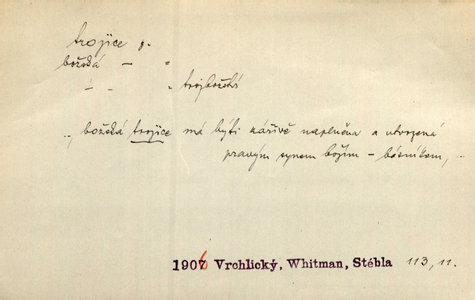 trojice ž.
božská — "
— " — " trojbožství
„ božská trojice má býti zářivě naplněna a utvrzená
pravým synem božím – básníkem, ..
1906 Vrchlický, Whitman, Stébla 113, 11.